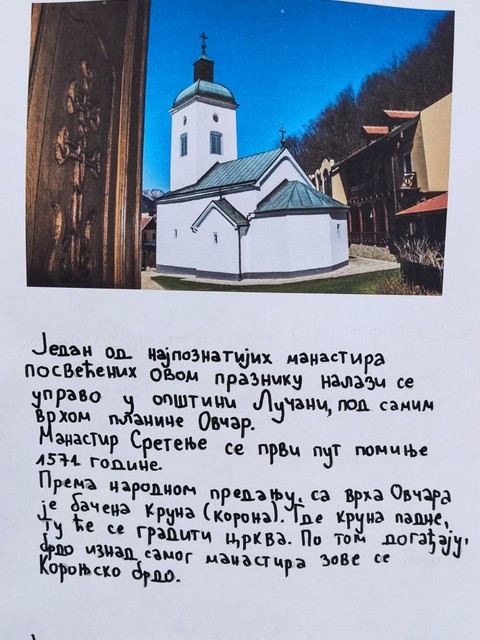 Један од најпознатијих манастира
посвећених овом празнику налази се
управо у општини Лучани, под самим
врхом планине Овчар.
Манастир Сретење се први пут помиње
1571 године.
Према народном предању, са врха Овчара
је бачена круна (корона). Где круна падне,
ту ће се градити црква. По том догађају,
брдо изнад самог манастира зове се
Короњско брдо.